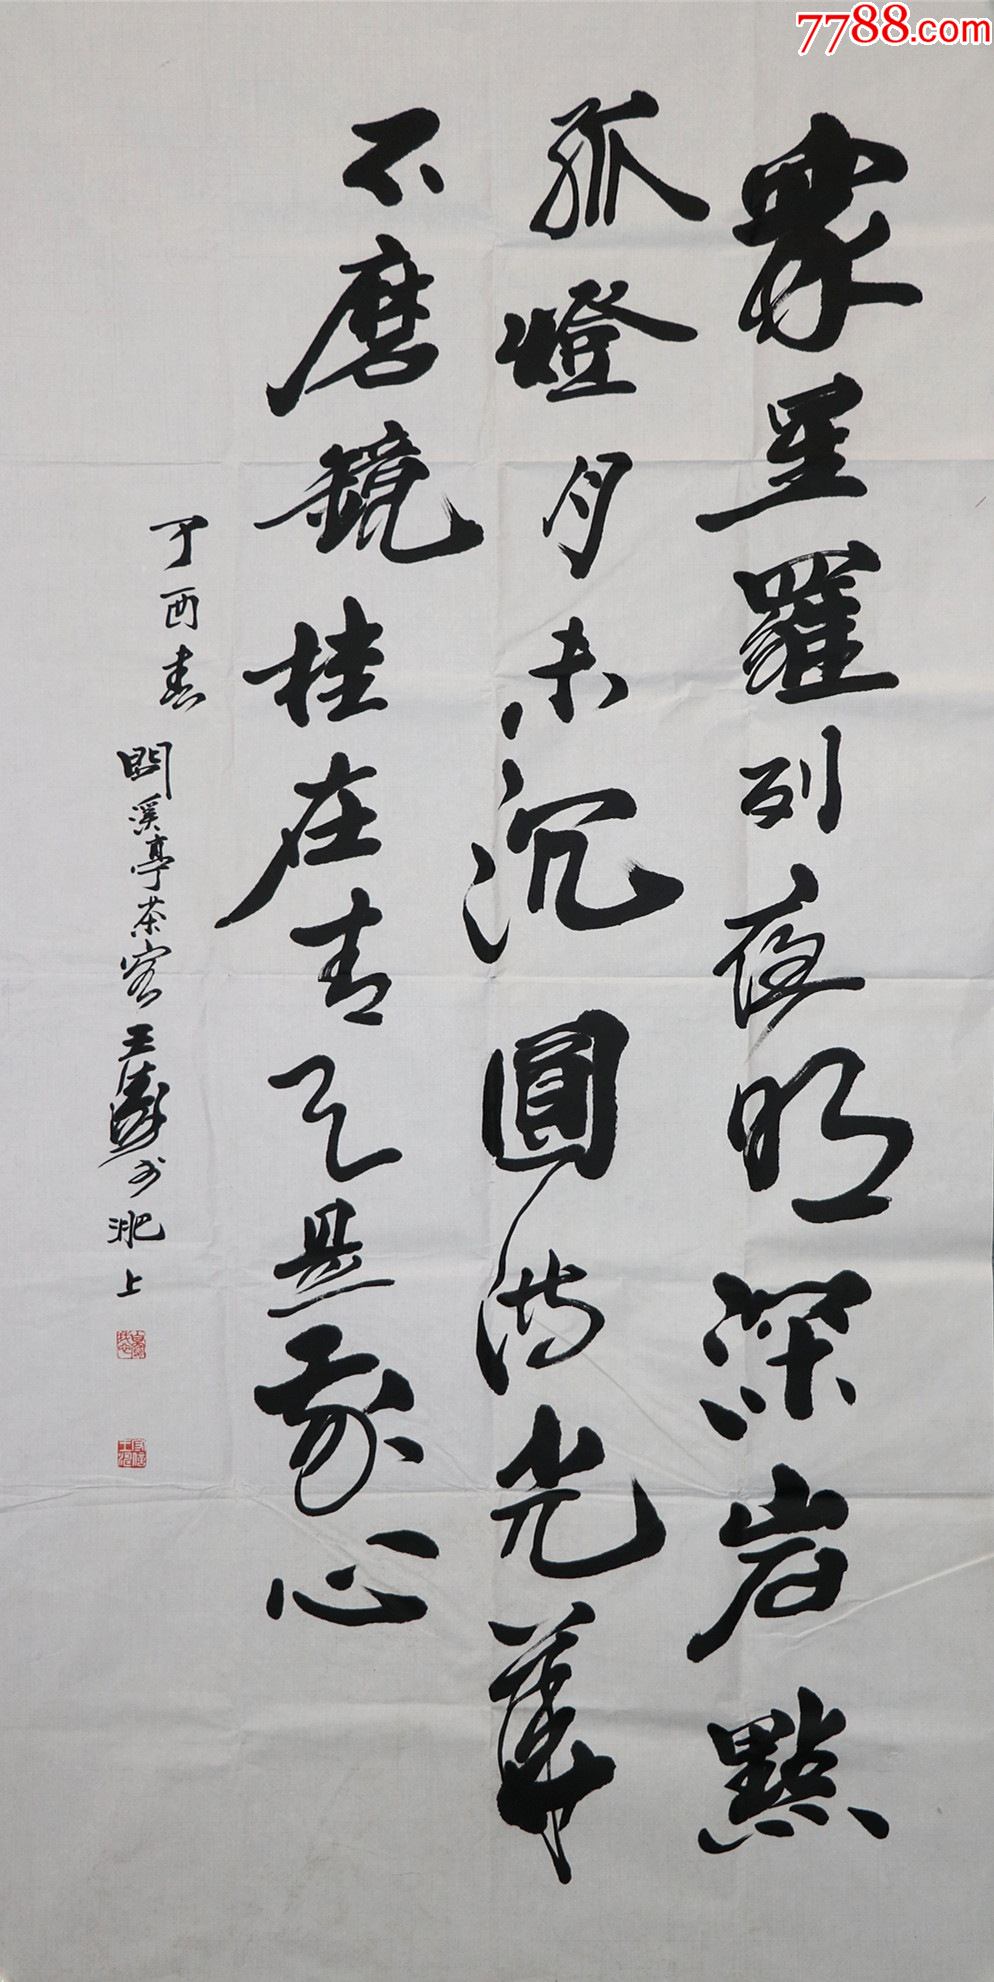 7788.com
眾星羅列夜明深岩點
孤燈月未沉圓滿光華
不磨鏡挂在青天是我心
丁酉春
問溪亭茶客王濤於淝上